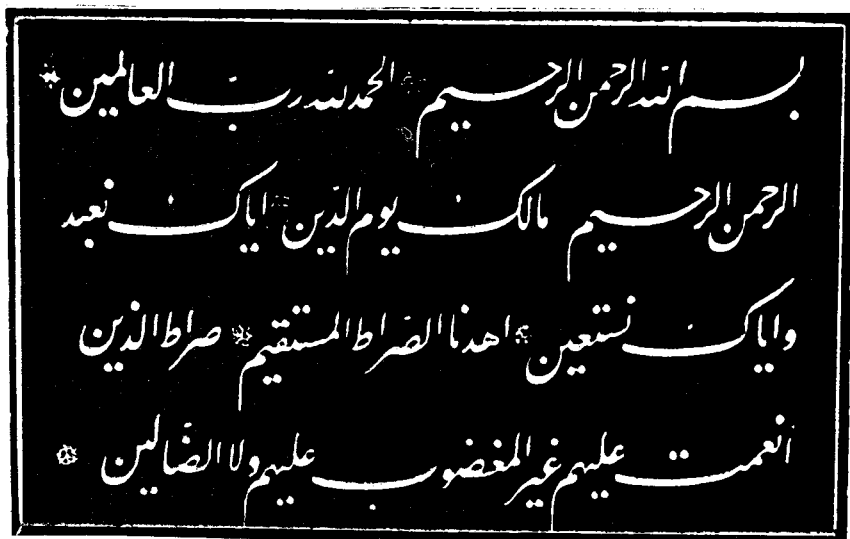 بسم الله الرحمن الرحيم الحمد لله رب العالمين
الرحمن الرحيم مالك يوم الدين اياك نعبد
واياك نستعين اهدنا الصراط المستقيم صراط الذين
أنعمت عليهم غير المغضوب عليهم ولا الضالين